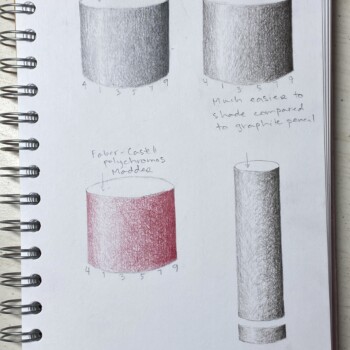 9 1 3 5 7 9
9 1 3 5 7 9
Much easier to
shade compared
to graphite pencil
Faber-Castell
polychromos
Madder
9 1 3 5 7 9